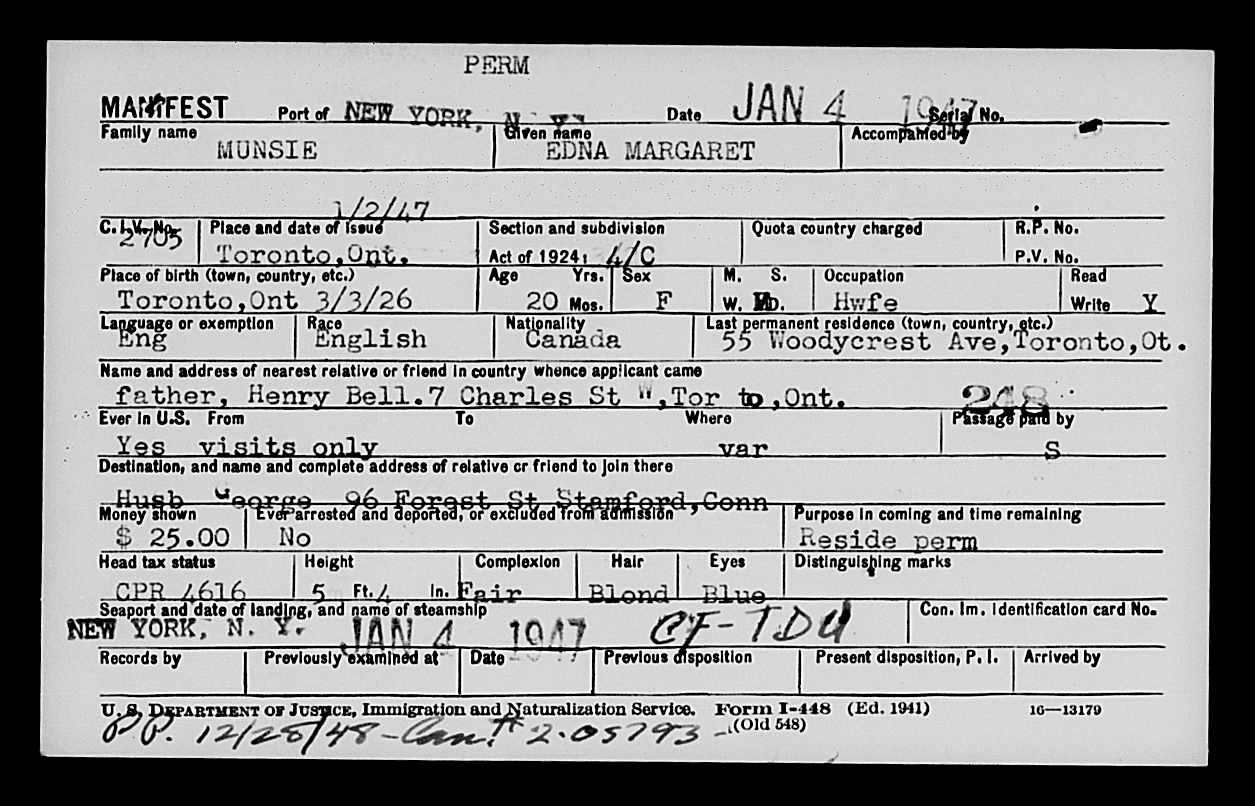 PERM
MANIFEST Port of NEW YORK, N. Y. Date JAN 4 1947 Serial No.
Family name Given name Accompanied by
MUNSIE EDNA MARGARET
1/2/47
C.I.V. No. Place and date of issue Section and subdivision Quota country charged R.P. No.
2705 Toronto,Ont. Act of 1924: 4/C P.V. No.
Place of birth (town, country, etc.) Age Yrs. Sex M. S. Occupation Read
Toronto,Ont 3/3/26 20 Mos. F W. D. Hwfe Write Y
Language or exemption Race Nationality Last permanent residence (town, country, etc.)
Eng English Canada 55 Woodycrest Ave,Toronto,Ot.
Name and address of nearest relative or friend in country whence applicant came
father, Henry Bell.7 Charles St W,Tor to,Ont. 248
Ever in U.S. From To Where Passage paid by
Yes visits only var S
Destination, and name and complete address of relative or friend to join there
Husb George 96 Forest St Stamford,Conn
Money shown Ever arrested and deported, or excluded from admission Purpose in coming and time remaining
$ 25.00 No Reside perm
Head tax status Height Complexion Hair Eyes Distinguishing marks
CPR 4616 5 Ft. 4 In. Fair Blond Blue
Seaport and date of landing, and name of steamship Con. Im. Identification card No.
NEW YORK, N. Y. JAN 4 1947 CF-TDU
Records by Previously examined at Date Previous disposition Present disposition, P. I. Arrived by
U. S. DEPARTMENT OF JUSTICE, Immigration and Naturalization Service. Form I-448 (Ed. 1941) 16—13179
(Old 548)
P.P. 12/28/48 - Can. # 2.05793 -